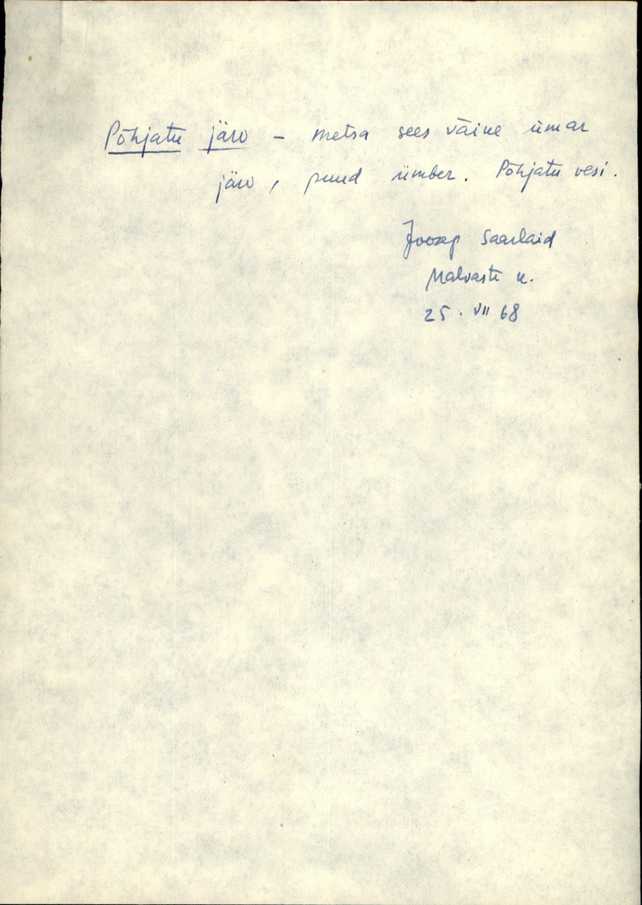 Põhjatu järv – metsa sees väike ümar
järv, puud ümber. Põhjatu vesi.
Joosep Saarlaid
Malvaste k.
25. VII 68